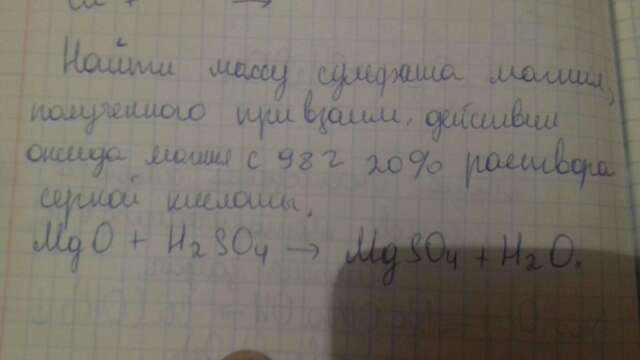 Найти массу сульфата магния,
полученного при взаим. действии
оксида магния с 98 г 20% раствора
серной кислоты.
MgO + H₂SO₄ → MgSO₄ + H₂O.